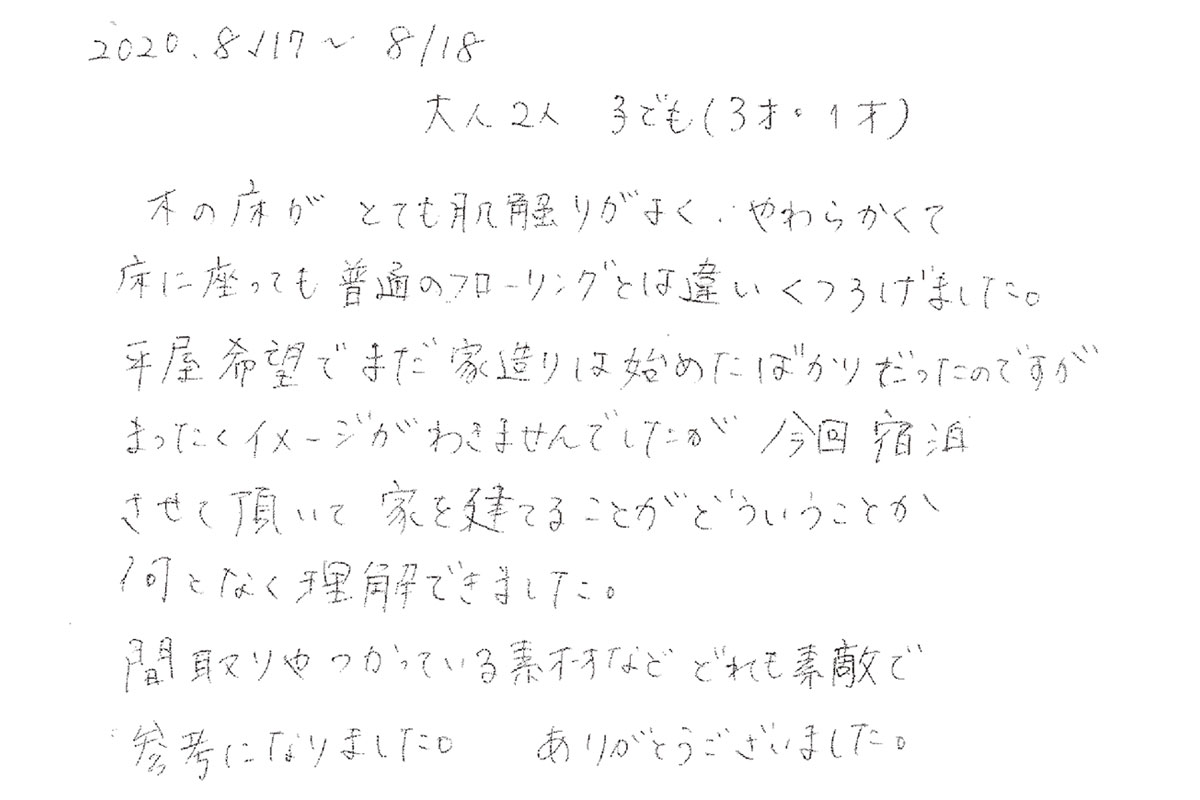 2020.8/17～ 8/18
大人2人 子ども(3才・1才)
木の床が とても肌触りがよく、やわらかくて
床に座っても普通のフローリングとは違いくつろげました。
平屋希望でまだ家造りは始めたばかりだったのですが
まったくイメージがわきませんでしたが 今回 宿泊
させて頂いて 家を建てることがどういうことか
何となく理解できました。
間取りやつかっている素材など どれも素敵で
参考になりました。 ありがとうございました。